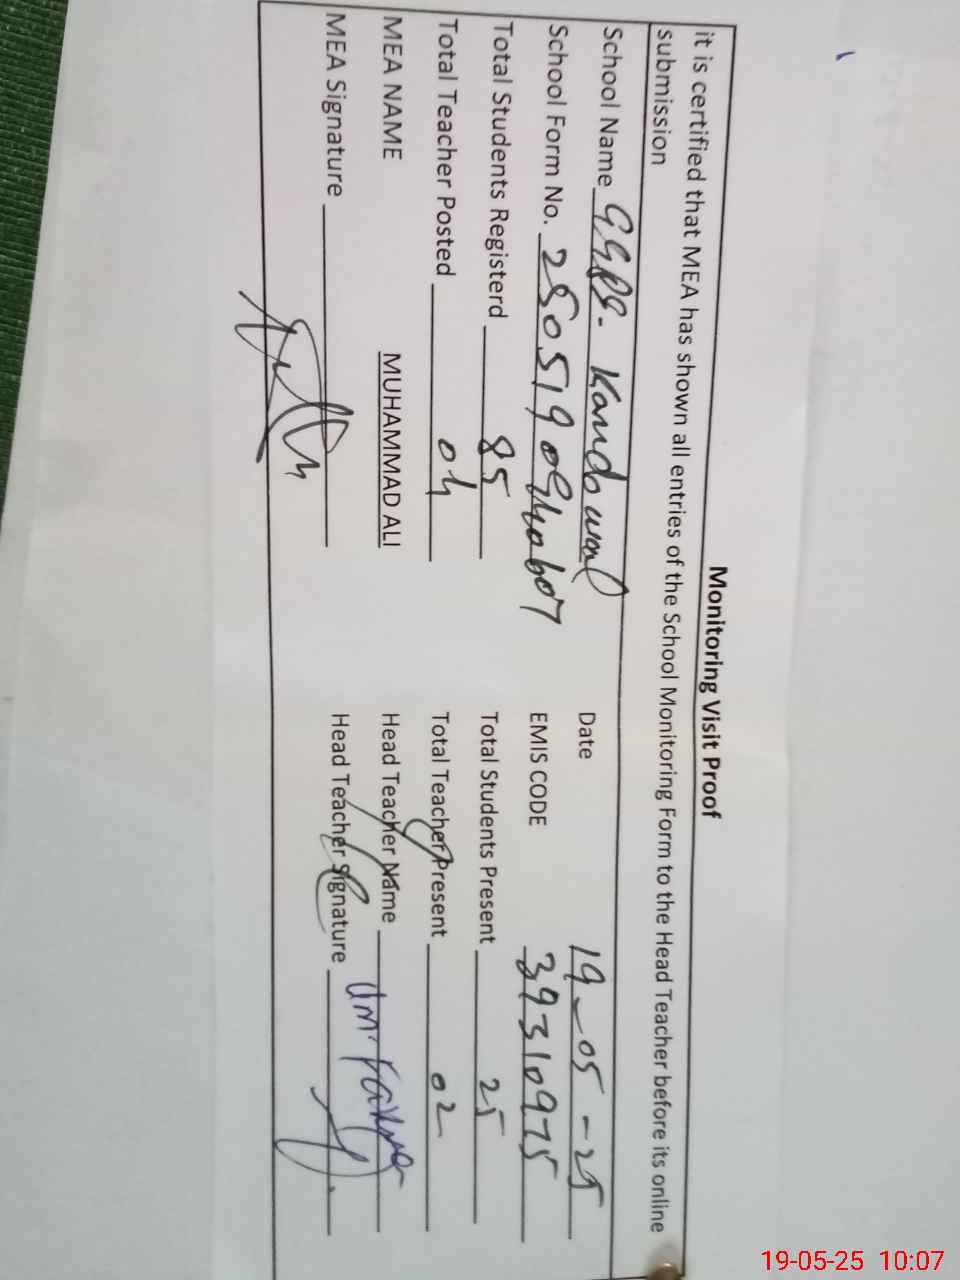 Monitoring Visit Proof
it is certified that MEA has shown all entries of the School Monitoring Form to the Head Teacher before its online
submission
School Name GGPS- Date 19-05-25
School Form No. EMIS CODE 39310975
Total Students Registerd 85 Total Students Present 25
Total Teacher Posted 04 Total Teacher Present 02
MEA NAME MUHAMMAD ALI Head Teacher Name
MEA Signature Head Teacher Signature
19-05-25 10:07